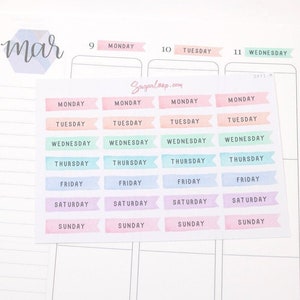 mar
9 MONDAY 10 TUESDAY 11 WEDNESDAY
MONDAY MONDAY MONDAY MONDAY
TUESDAY TUESDAY TUESDAY TUESDAY
WEDNESDAY WEDNESDAY WEDNESDAY WEDNESDAY
THURSDAY THURSDAY THURSDAY THURSDAY
FRIDAY FRIDAY FRIDAY FRIDAY
SATURDAY SATURDAY SATURDAY SATURDAY
SUNDAY SUNDAY SUNDAY SUNDAY